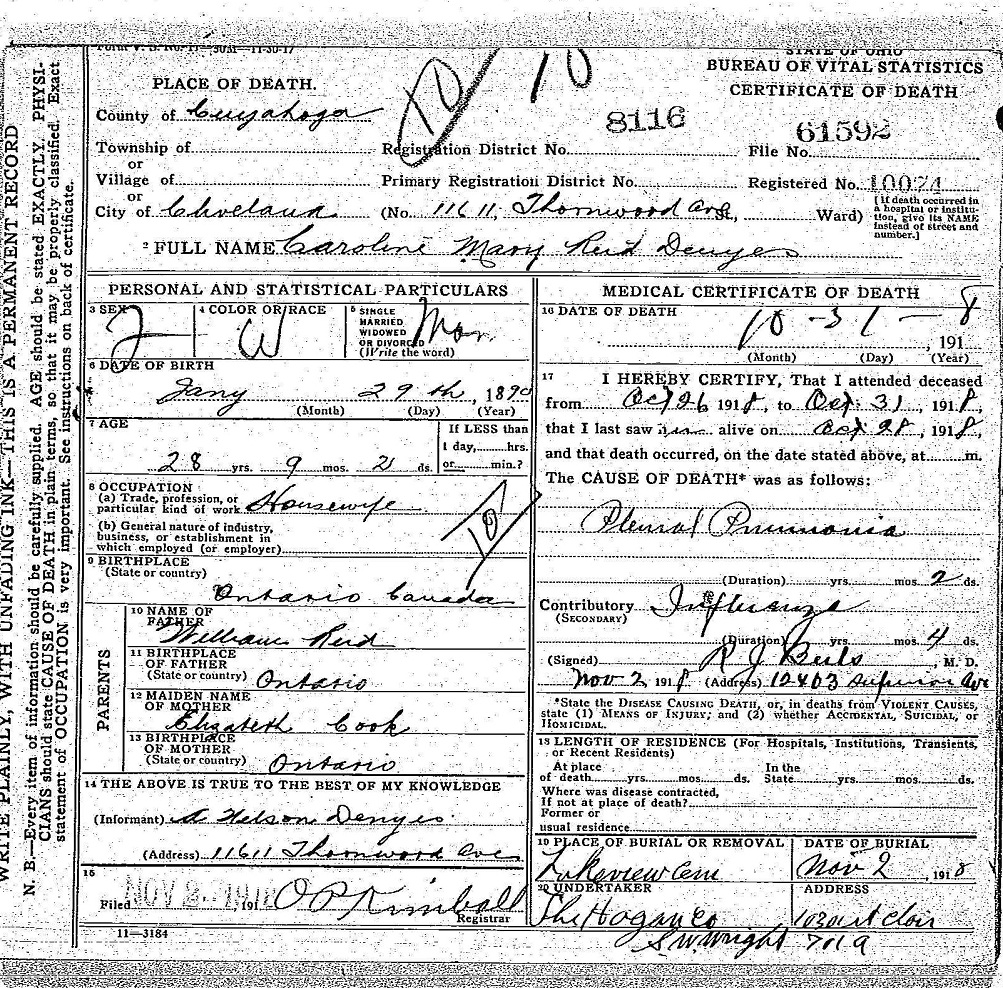 Form V. S. No. 11—30M—11-30-17
STATE OF OHIO
BUREAU OF VITAL STATISTICS
CERTIFICATE OF DEATH
10 10
8116 61592
PLACE OF DEATH.
County of Cuyahoga
Township of Registration District No. File No.
or
Village of Primary Registration District No. Registered No. 10024
or
City of Cleveland (No. 11611, Thornwood Ave St., Ward)
[If death occurred in a hospital or institution, give its NAME instead of street and number.]
2 FULL NAME Caroline Mary Reid Denyes
PERSONAL AND STATISTICAL PARTICULARS
3 SEX F
4 COLOR OR RACE W
5 SINGLE MARRIED WIDOWED OR DIVORCED (Write the word) Mar
6 DATE OF BIRTH
Jany 29th, 1890
(Month) (Day) (Year)
7 AGE
28 yrs. 9 mos. 2 ds.
If LESS than 1 day, hrs. or min.?
8 OCCUPATION
(a) Trade, profession, or particular kind of work Housewife
(b) General nature of industry, business, or establishment in which employed (or employer)
10
9 BIRTHPLACE
(State or country)
Ontario Canada
PARENTS
10 NAME OF FATHER
William Reid
11 BIRTHPLACE OF FATHER
(State or country) Ontario
12 MAIDEN NAME OF MOTHER
Elizabeth Cook
13 BIRTHPLACE OF MOTHER
(State or country) Ontario
14 THE ABOVE IS TRUE TO THE BEST OF MY KNOWLEDGE
(Informant) A Nelson Denyes
(Address) 11611 Thornwood Ave
15
Filed NOV 2 1918, 191 O P Kimball
Registrar
11—3184
MEDICAL CERTIFICATE OF DEATH
16 DATE OF DEATH
10 - 31 - 8
, 191
(Month) (Day) (Year)
17 I HEREBY CERTIFY, That I attended deceased
from Oct 26 1918, to Oct 31, 1918,
that I last saw alive on Oct 28, 1918,
and that death occurred, on the date stated above, at m.
The CAUSE OF DEATH* was as follows:
Pleural Pneumonia
(Duration) yrs. mos. 2 ds.
Contributory Influenza
(SECONDARY)
(Duration) yrs. mos. 4 ds.
(Signed) R J , M. D.
Nov 2 1918 (Address) 12403 Superior Ave
*State the DISEASE CAUSING DEATH, or, in deaths from VIOLENT CAUSES, state (1) MEANS OF INJURY; and (2) whether ACCIDENTAL, SUICIDAL, or HOMICIDAL.
18 LENGTH OF RESIDENCE (For Hospitals, Institutions, Transients, or Recent Residents)
At place of death yrs. mos. ds. In the State yrs. mos. ds.
Where was disease contracted,
If not at place of death?
Former or
usual residence
19 PLACE OF BURIAL OR REMOVAL DATE OF BURIAL
Lakeview Cem Nov 2, 1918
20 UNDERTAKER ADDRESS
The Hogan Co St Clair
S.W. Wright 701 a
WRITE PLAINLY, WITH UNFADING INK—THIS IS A PERMANENT RECORD
N. B.—Every item of information should be carefully supplied. AGE should be stated EXACTLY. PHYSI-
CIANS should state CAUSE OF DEATH in plain terms, so that it may be properly classified. Exact
statement of OCCUPATION is very important. See instructions on back of certificate.